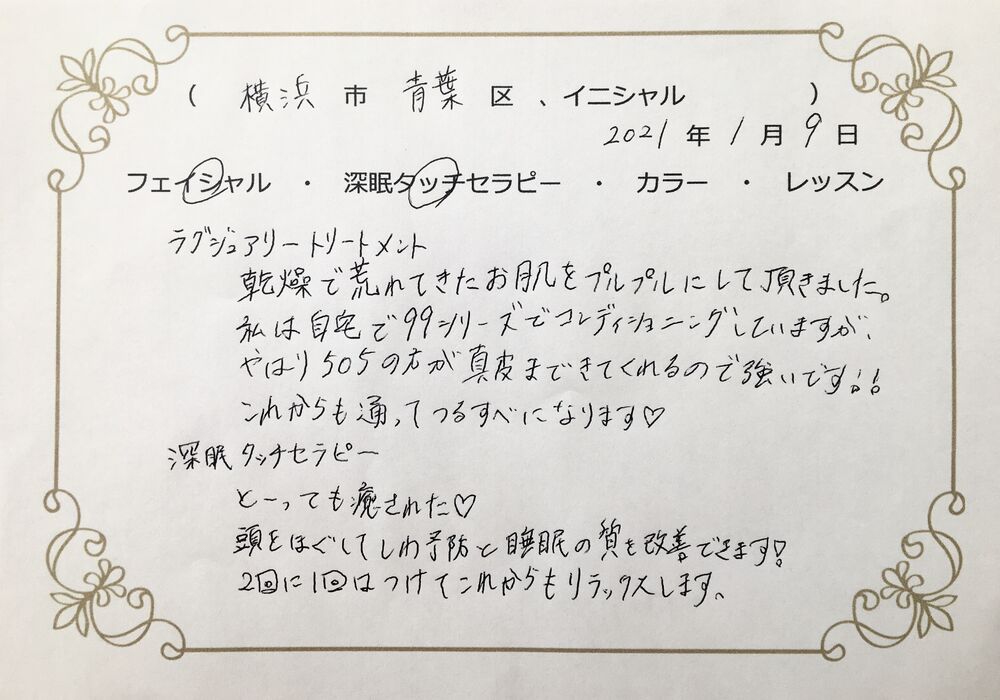 ( 横浜 市 青葉 区 、イニシャル )
2021 年 1 月 9 日
フェイシャル ・ 深眠タッチセラピー ・ カラー ・ レッスン
ラグジュアリートリートメント
乾燥で荒れてきたお肌をプルプルにして頂きました。
私は自宅で99シリーズでコンディショニングしていますが、
やはり505の方が真皮まできてくれるので強いです!!
これからも通ってつるすべになります♡
深眠タッチセラピー
とーっても癒された♡
頭をほぐしてしわ予防と睡眠の質を改善できます!
2回に1回はつけてこれからもリラックスします、